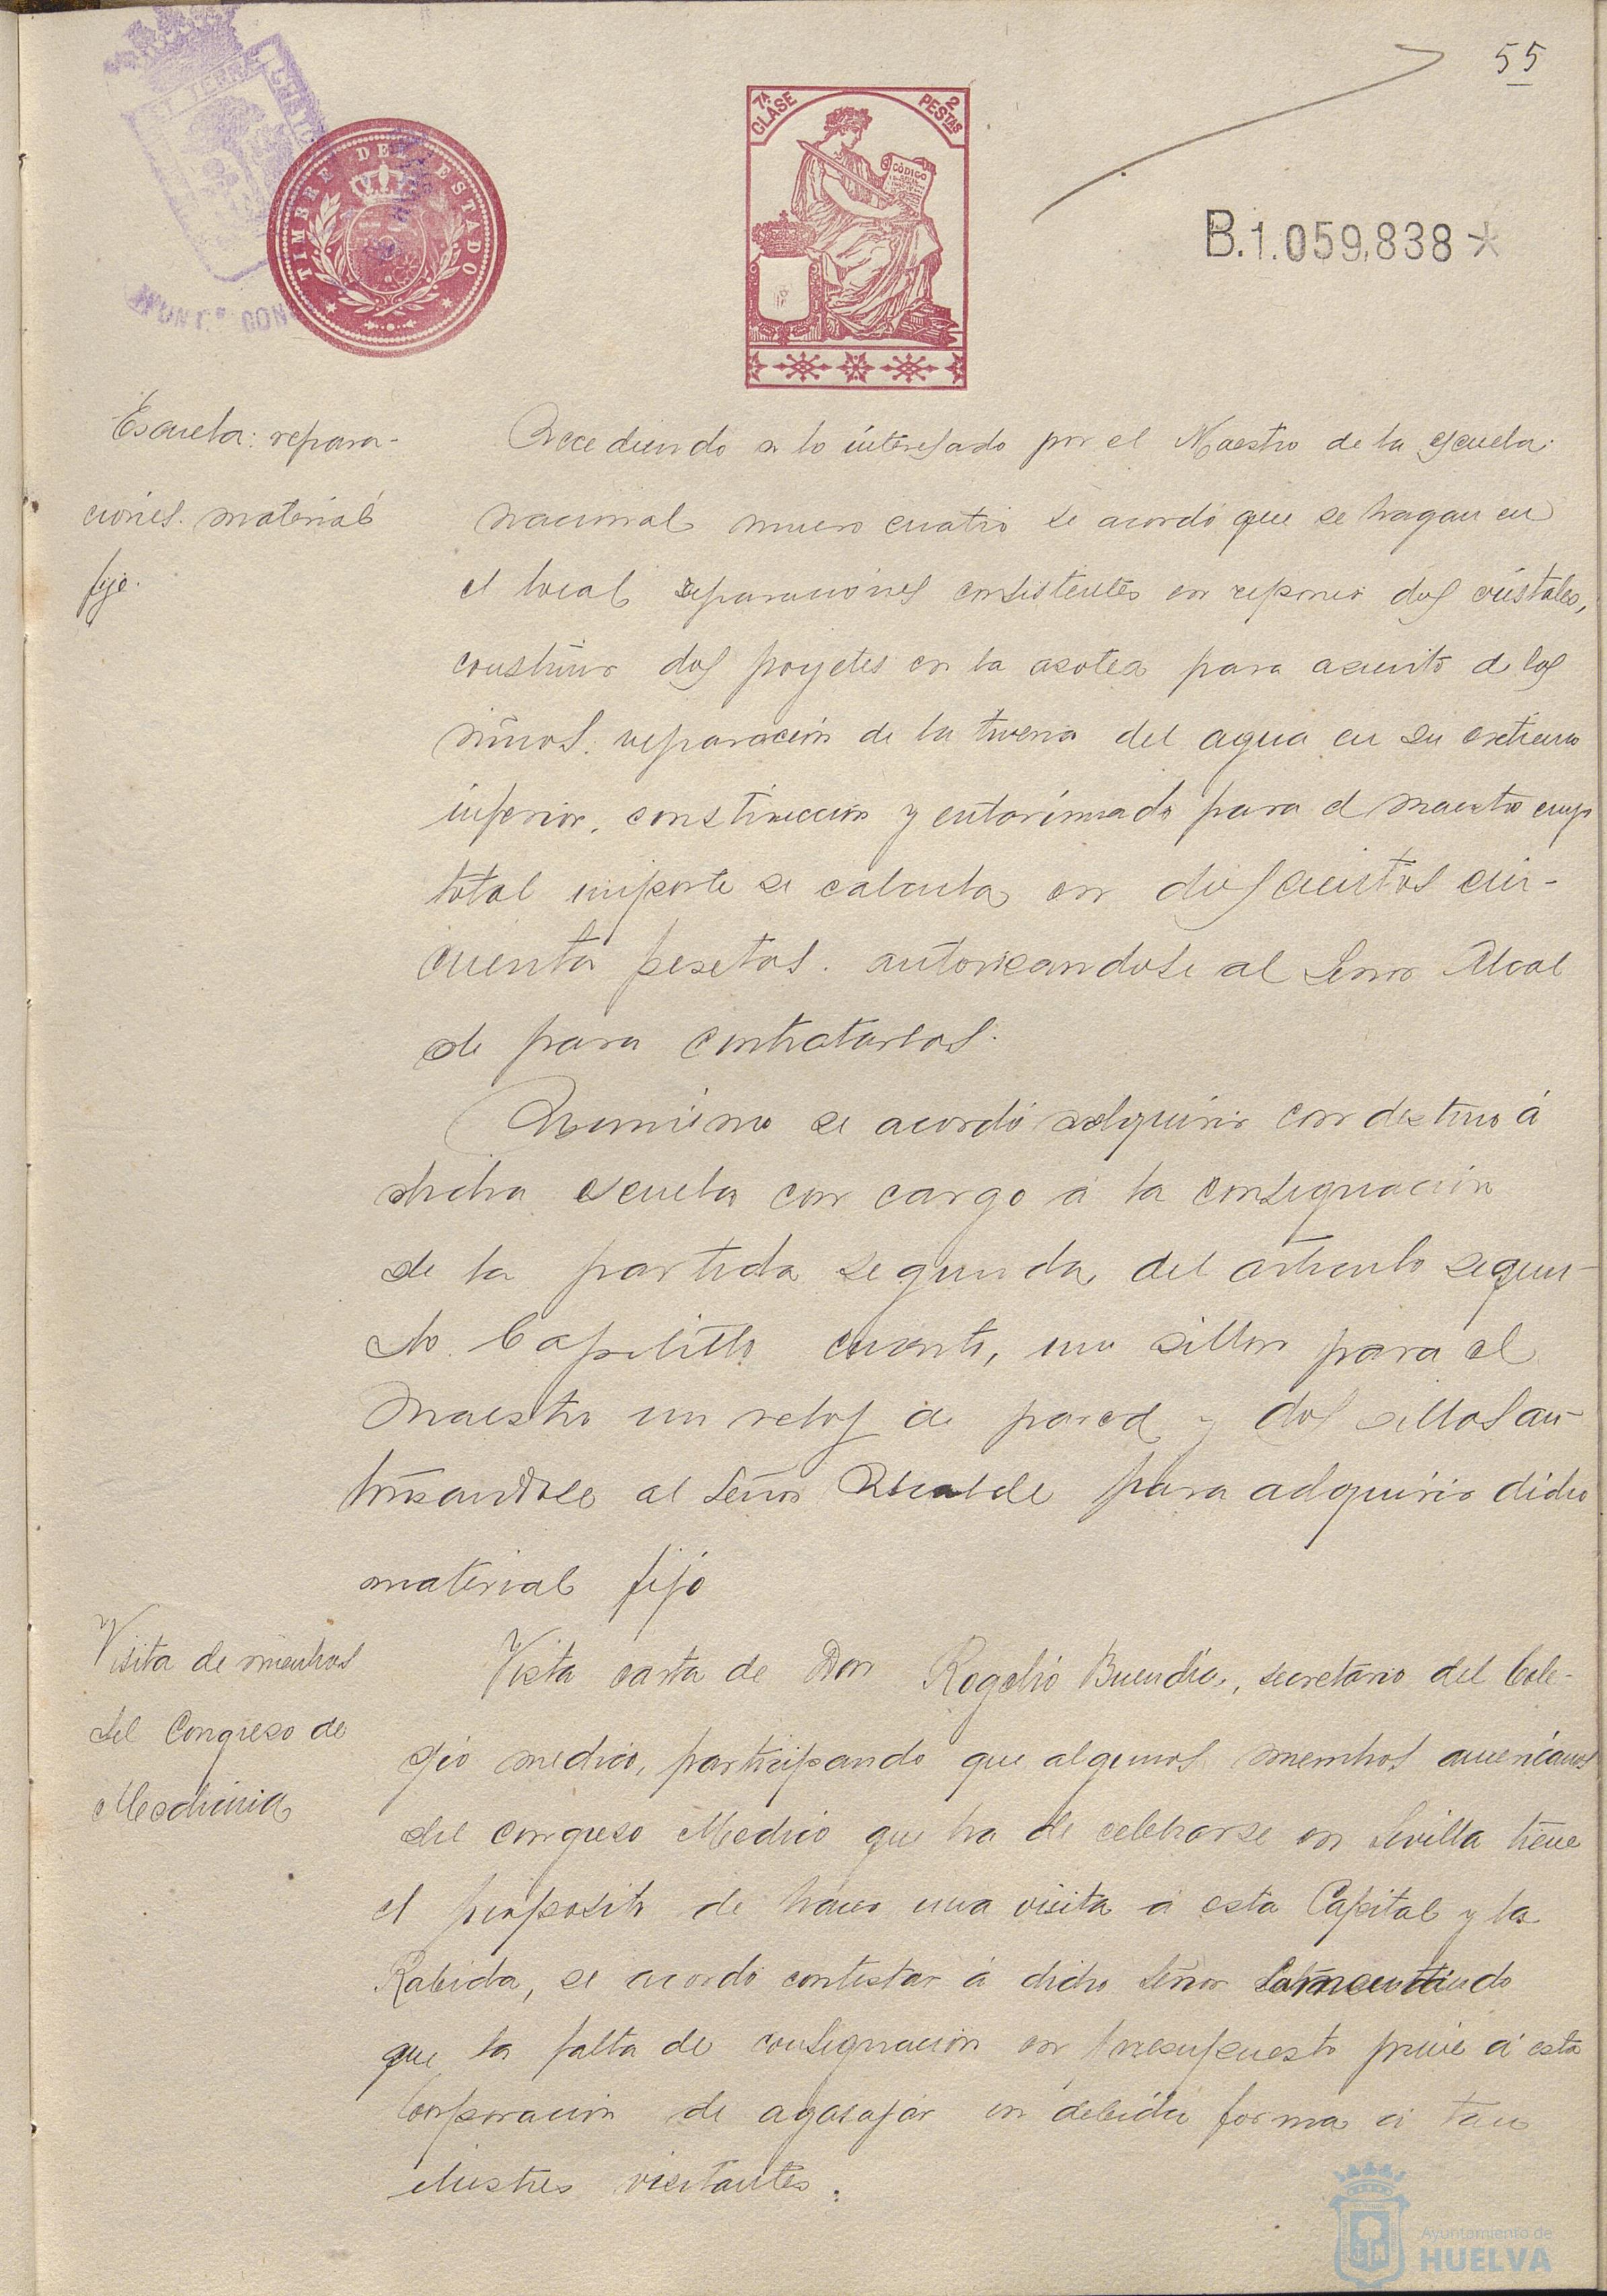 55
7ª CLASE
2 PESTAS
CÓDIGO
TIMBRE DEL ESTADO
B.1.059.838*
Escuela: repara-
ciones. material
fijo.
Accediendo a lo interesado por el Maestro de la escuela
nacional numero cuatro se acordó que se hagan en
el local reparaciones consistentes en reponer dos cristales,
construir dos poyetes en la azotea para asiento de los
niños. reparación de la tuveria del agua en su extremo
inferior. construccion y entarimado para el maestro cuyo
total importe se calcula en doscientos cin-
cuenta pesetas. autorizandose al Señor Alcal
de para contratarlas.
Asimismo se acordó adquirir con destino á
dicha escuela con cargo á la consignación
de la partida segunda del articulo segun-
do. Capitulo cuarto, un sillon para el
maestro un reloj de pared y dos sillas au-
torizandose al Señor Alcalde para adquirir dicho
material fijo
Visita de miembros
del Congreso de
Medicina
Vista carta de Don Rogelio Buendia, secretario del Cole-
gio medico, participando que algunos miembros americanos
del congreso Medico que ha de celebrarse en Sevilla tiene
el proposito de hacer una visita á esta Capital y la
Rabida, se acordó contestar á dicho Señor
que la falta de consignación en presupuesto prive á esta
Corporación de agasajar en debida forma á tan
ilustres visitantes.
Ayuntamiento de
HUELVA